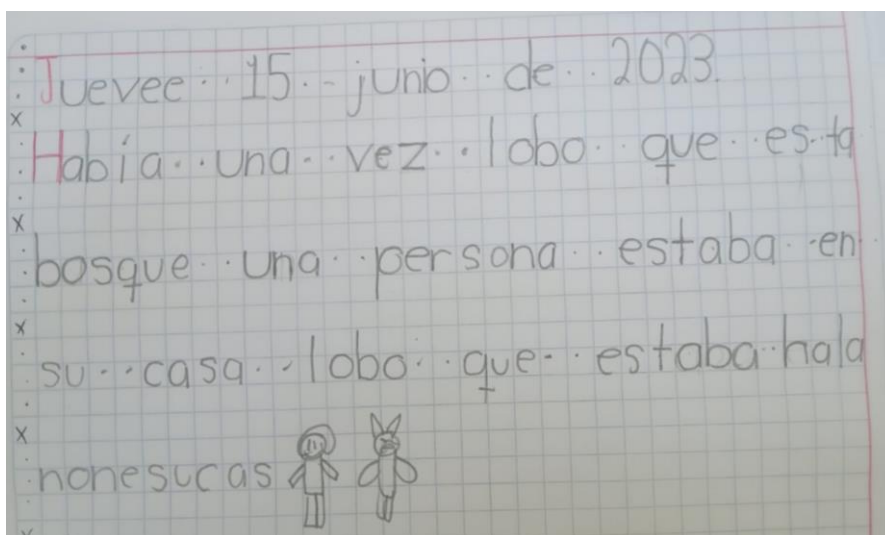 Juevee 15 junio de 2023.
Había una vez lobo que esta
bosque una persona estaba en
su casa lobo que estaba hala
nonesucas